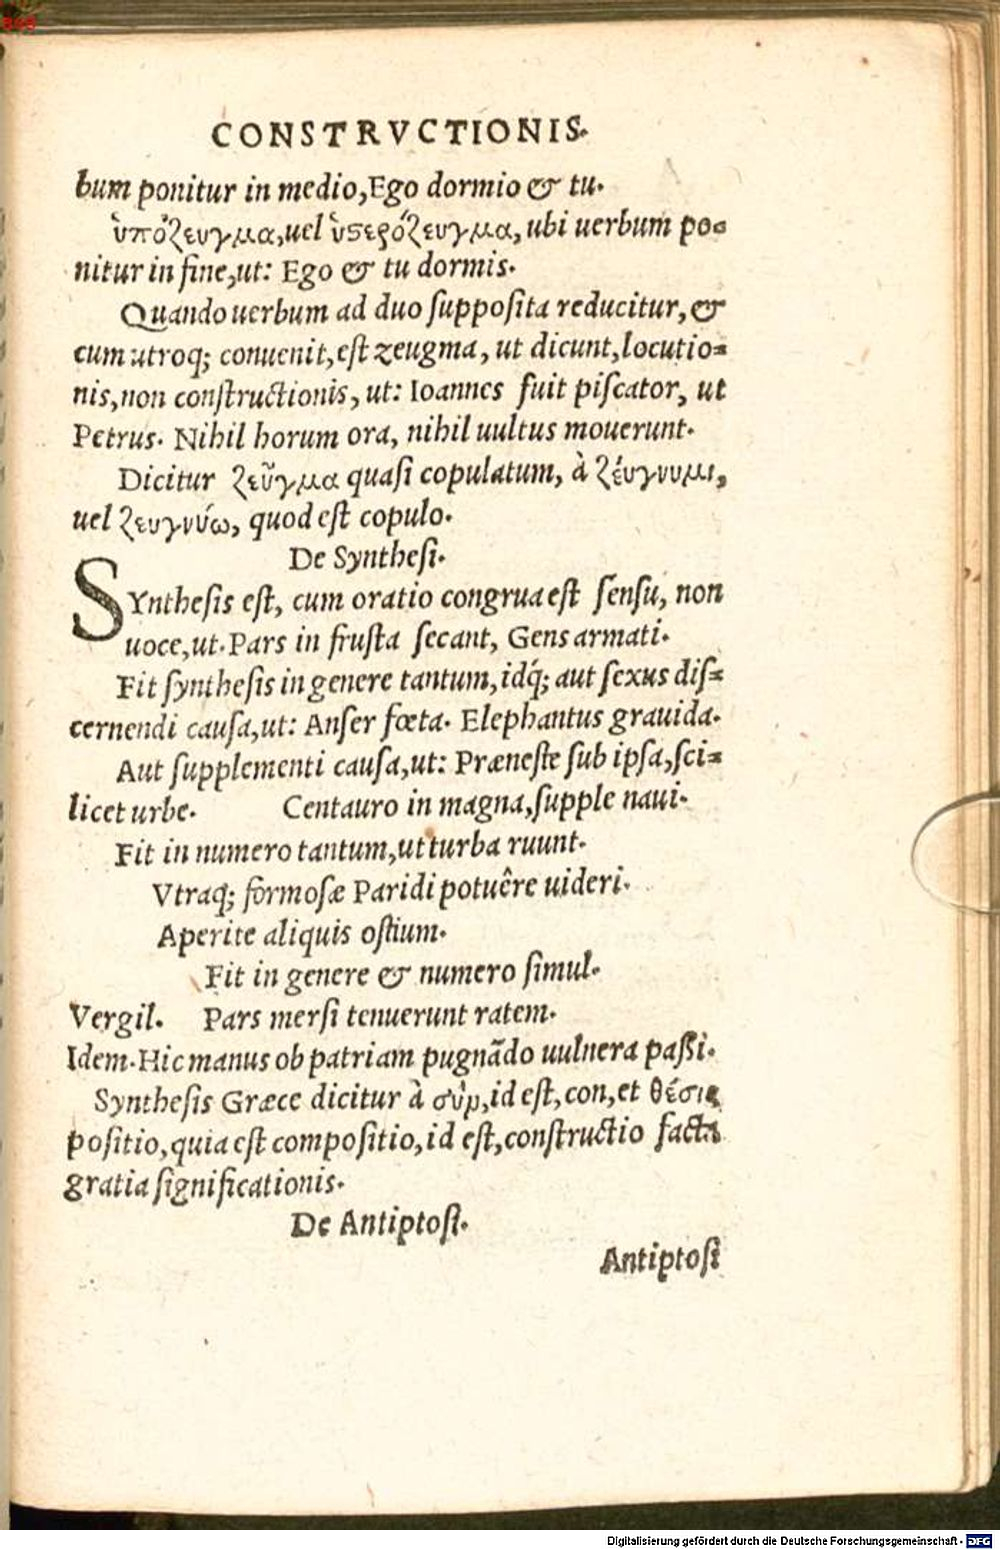 CONSTRVCTIONIS.
bum ponitur in medio, Ego dormio & tu.
ὑπόζευγμα, uel ὑστερόζευγμα, ubi uerbum po=
nitur in fine, ut: Ego & tu dormis.
Quando uerbum ad duo supposita reducitur, &
cum utroq; conuenit, est zeugma, ut dicunt, locutio=
nis, non constructionis, ut: Ioannes fuit piscator, ut
Petrus. Nihil horum ora, nihil uultus mouerunt.
Dicitur ζεῦγμα quasi copulatum, à ζεύγνυμι,
uel ζευγνύω, quod est copulo.
De Synthesi.
SYnthesis est, cum oratio congrua est sensu, non
uoce, ut. Pars in frusta secant, Gens armati.
Fit synthesis in genere tantum, idq́; aut sexus dis=
cernendi causa, ut: Anser fœta. Elephantus grauida.
Aut supplementi causa, ut: Præneste sub ipsa, sci=
licet urbe. Centauro in magna, supple naui.
Fit in numero tantum, ut turba ruunt.
Vtraq; formosæ Paridi potuêre uideri.
Aperite aliquis ostium.
Fit in genere & numero simul.
Vergil. Pars mersi tenuerunt ratem.
Idem. Hic manus ob patriam pugnãdo uulnera passi.
Synthesis Græce dicitur à σὺν, id est, con, et θέσις
positio, quia est compositio, id est, constructio facta
gratia significationis.
De Antiptosi.
Antiptosi
Digitalisierung gefördert durch die Deutsche Forschungsgemeinschaft - DFG